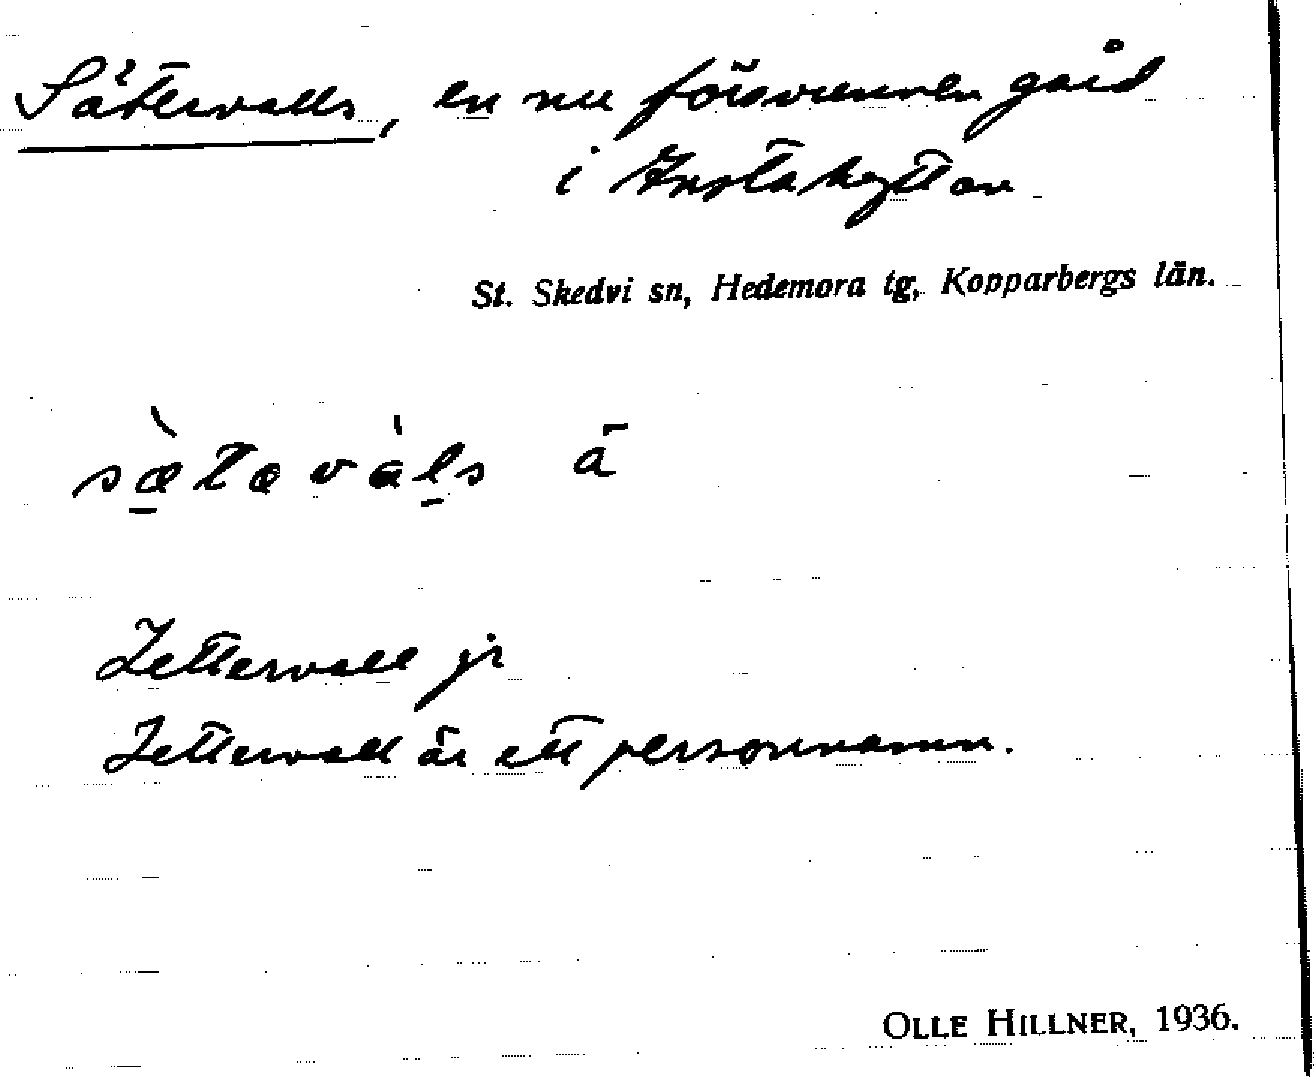 Sätervalls, en nu försvunnen gård
i Knstahyttan
St. Skedvi sn, Hedemora tg, Kopparbergs län.
sæ̀tavàls ā
Zettervall jr
Zettervall är ett personnamn.
OLLE HILLNER, 1936.